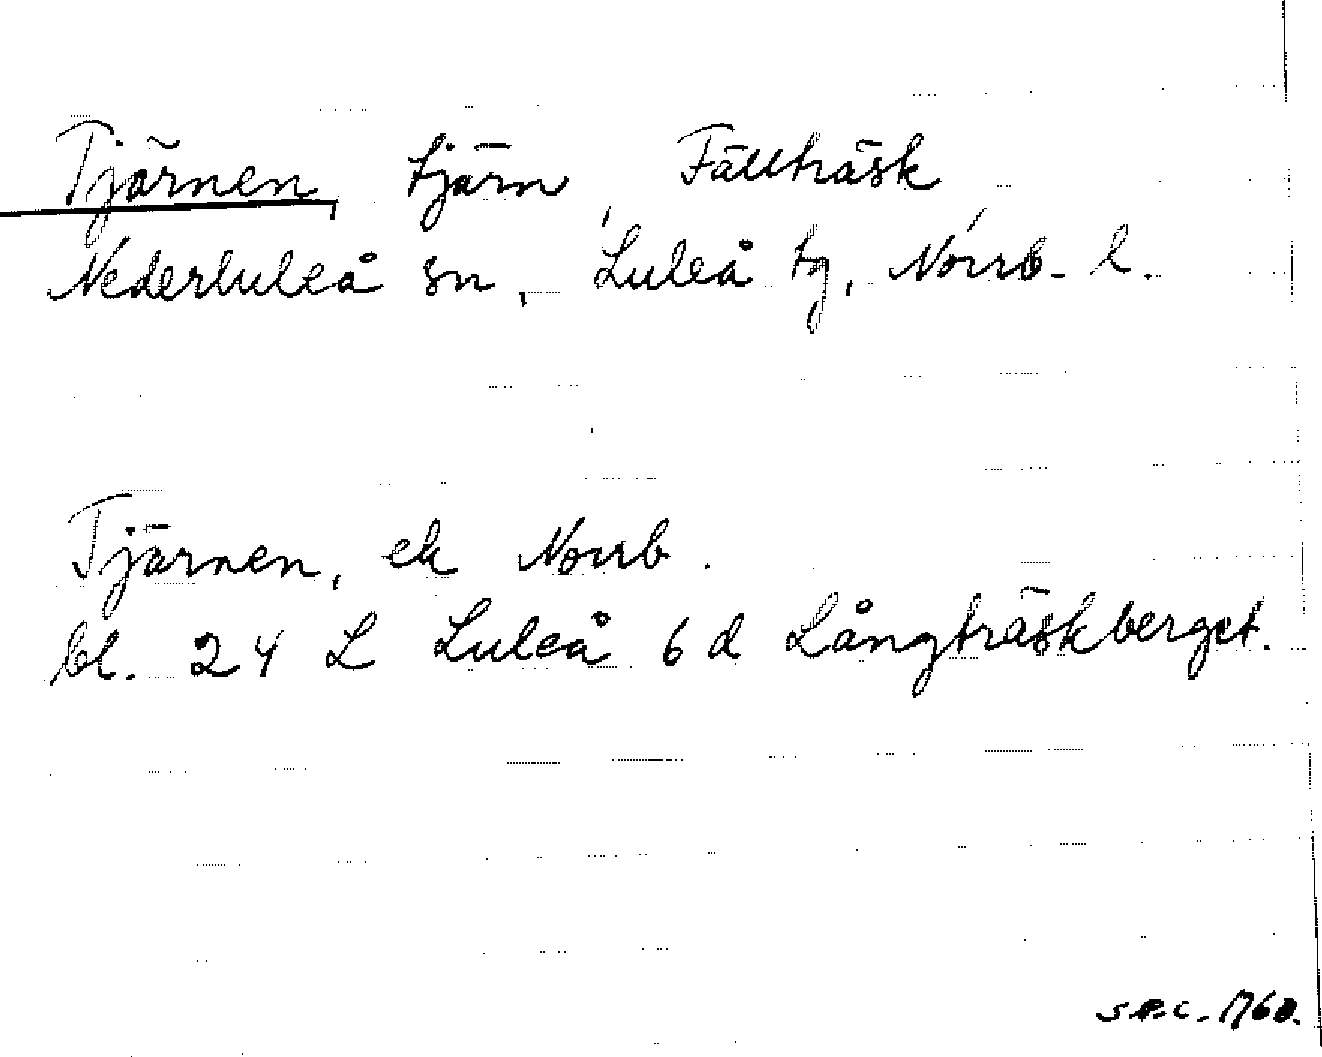 Tjärnen, tjärn, Fällträsk
Nederluleå sn, Luleå tg, Norrb. l.
Tjärnen, ek Norrb.
bl. 24 L Luleå 6d Långträskberget.